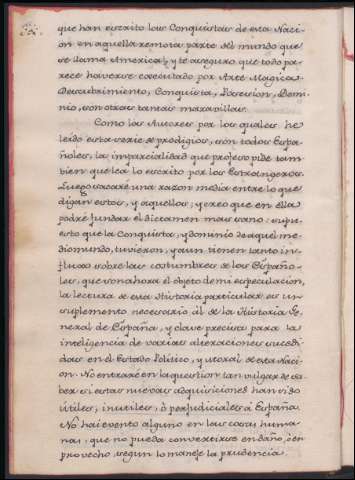 que han escrito las Conquistas de esta Naci-
on en aquella remota parte del mundo que
se llama America; y te aseguro que todo pa-
rece haverse executado por Arte Magica:
Descubrimiento, Conquista, Posesion, Domi-
nio, son otras tantas maravillas.
Como los Autores por los quales he
leído esta serie de prodigios, son todos Espa-
ñoles, la imparcialidad que profeso pide tam-
bien que lea lo escrito por los Estrangeros.
Luego sacaré una razon media entre lo que
digan estos, y aquellos; y creo que en ella
podré fundar el dictamen mas sano: supu-
esto que la Conquista, y dominio de aquel me-
dio mundo, tuvieron, y aun tienen tanto in-
fluxo sobre las costumbres de los Españo-
les, que son ahora el objeto de mi especulacion,
la lectura de esta Historia particular es un
suplemento necesario al de la Historia Ge-
neral de España, y clave precisa para la
inteligencia de varias alteraciones sucedi-
das en el Estado Politico, y Moral de esta Naci-
on. No entraré en la question tan vulgar de sa-
ber si estas nuevas adquisiciones han sido
utiles, inutiles, ò perjudiciales à España.
No hai evento alguno en las cosas huma-
nas, que no pueda convertirse en daño, ò en
provecho, segun lo maneje la prudencia.